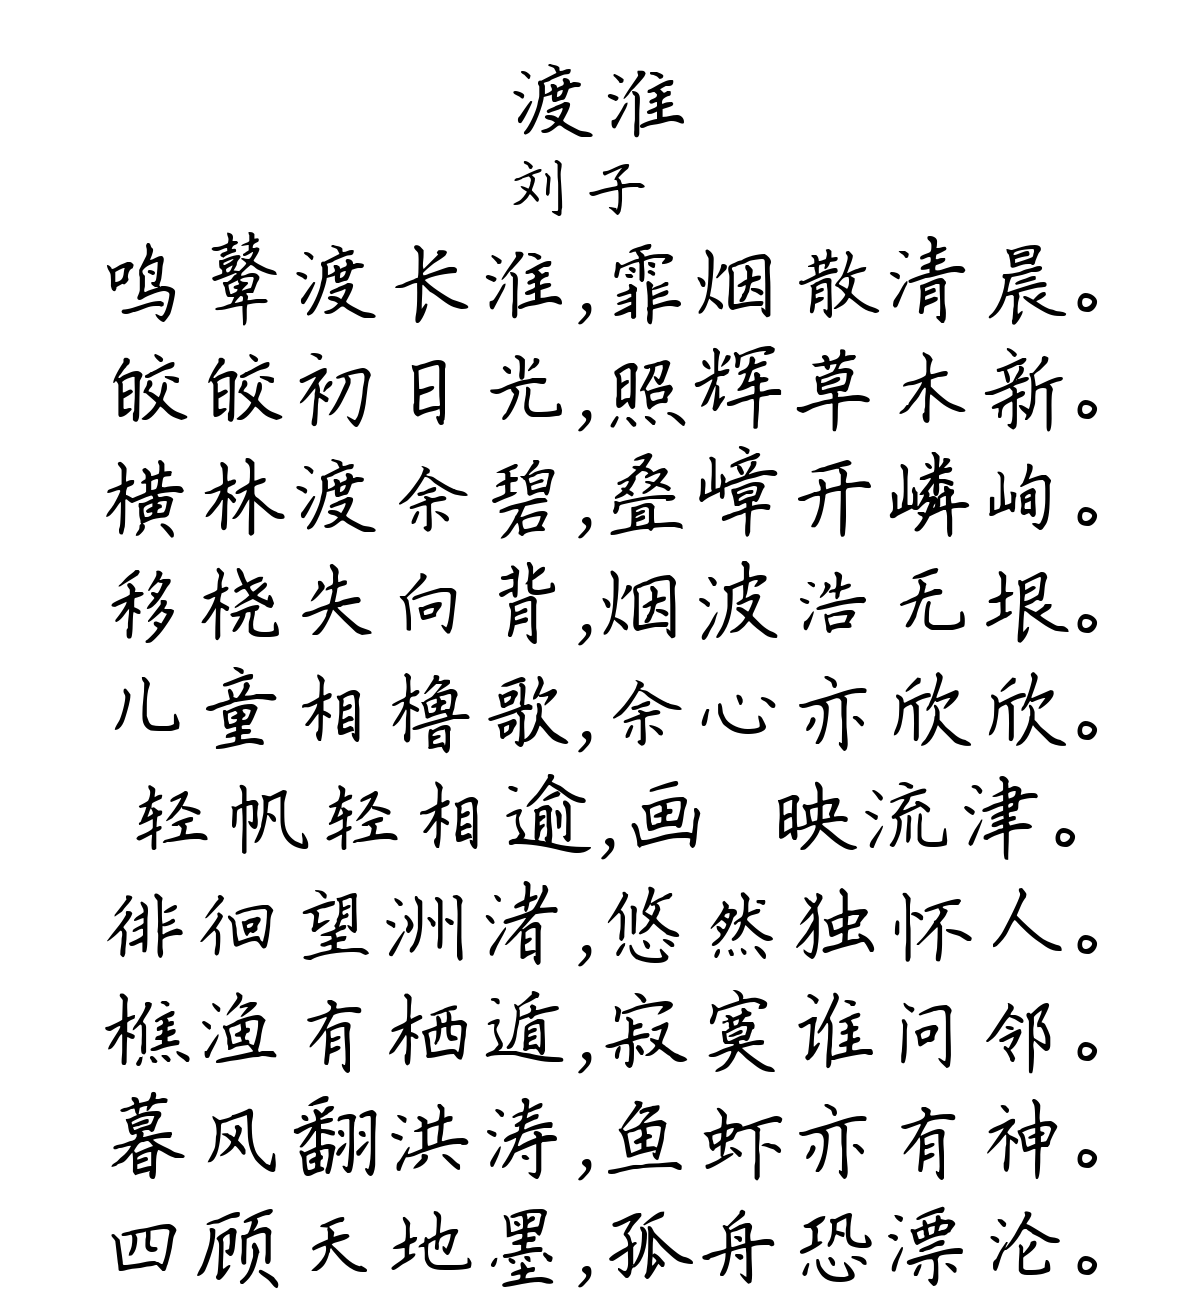 渡淮
刘子
鸣鼙渡长淮,霏烟散清晨。
皎皎初日光,照辉草木新。
横林渡余碧,叠嶂开嶙峋。
移桡失向背,烟波浩无垠。
儿童相橹歌,余心亦欣欣。
轻帆轻相逾,画 映流津。
徘徊望洲渚,悠然独怀人。
樵渔有栖遁,寂寞谁问邻。
暮风翻洪涛,鱼虾亦有神。
四顾天地墨,孤舟恐漂沦。